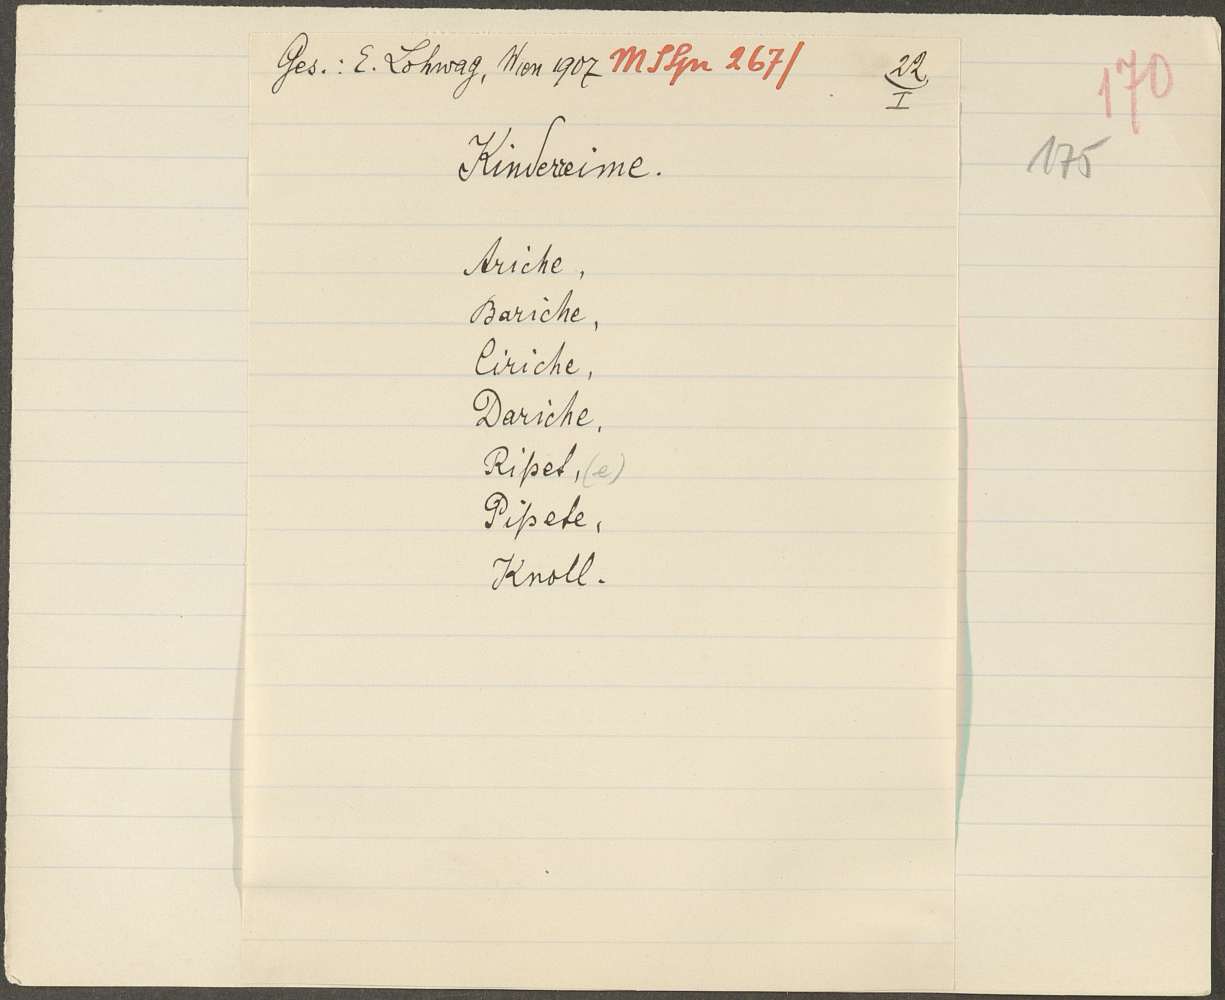 Ges.: E. Lohwag, Wien 1907 267/ 22
I
170
175
Kinderreime.
Ariche,
Bariche,
Ciriche,
Dariche,
Ripet, (e)
Pipete,
Knoll.